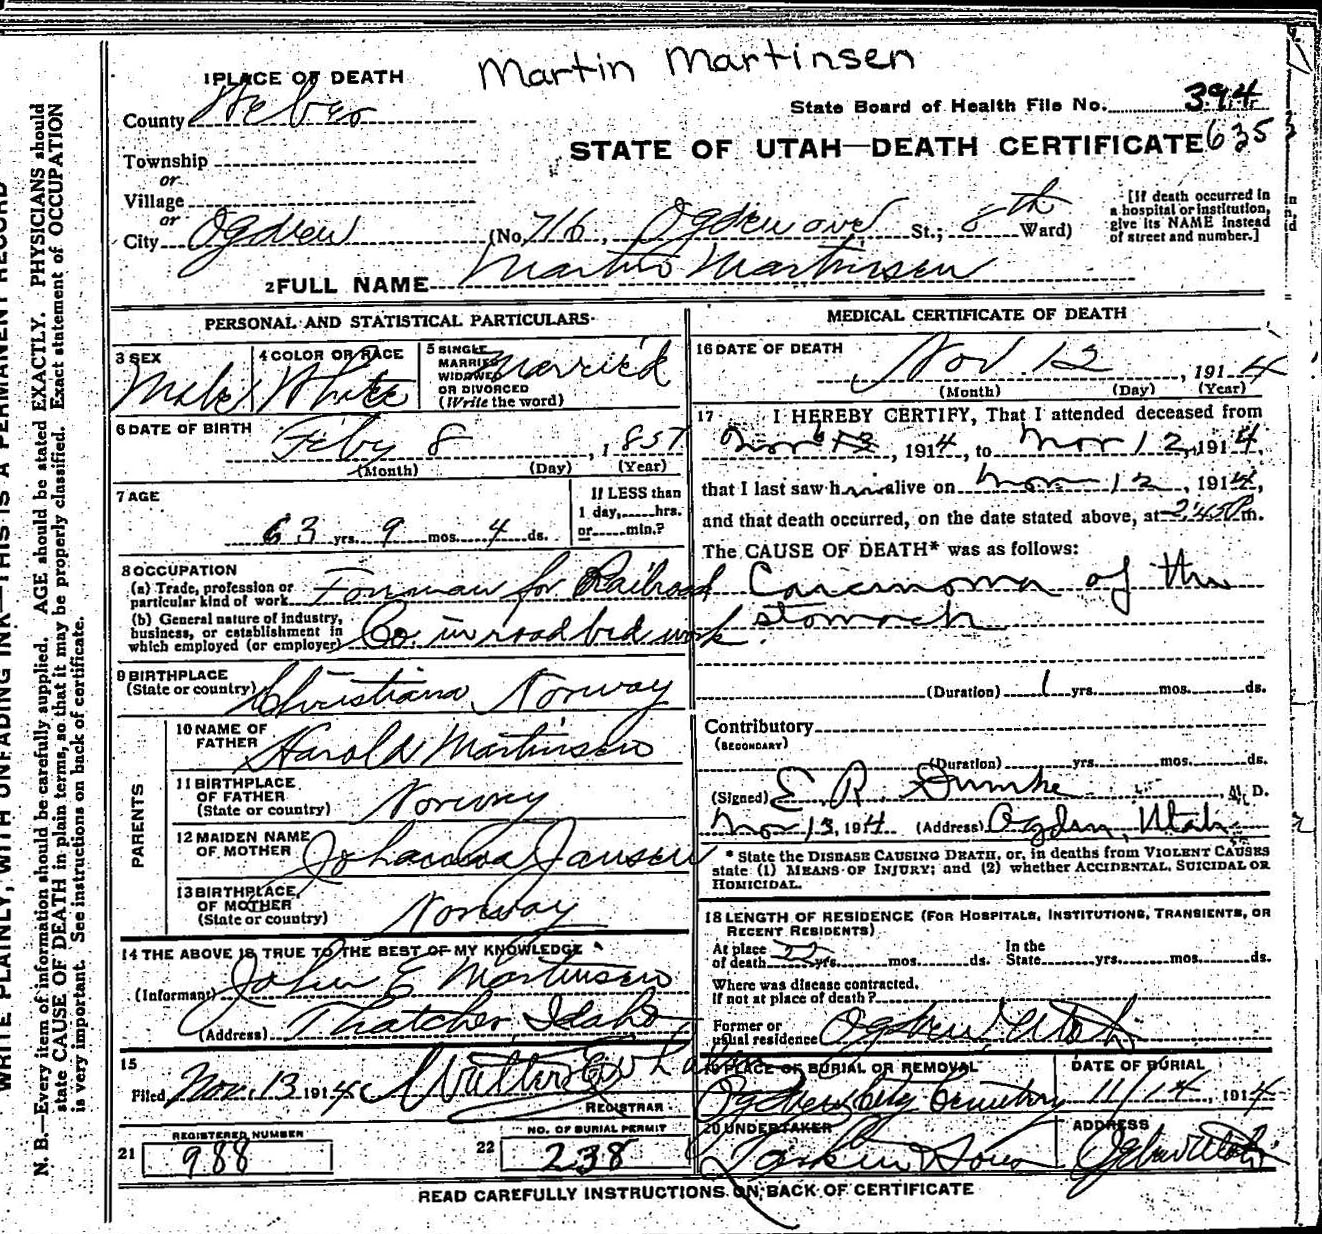 Martin Martinsen
1 PLACE OF DEATH
County Weber
State Board of Health File No. 394
STATE OF UTAH—DEATH CERTIFICATE 635
Township
or
Village
or
City Ogden (No. 716, Ogden ave St.; 8th Ward)
[If death occurred in
a hospital or institution,
give its NAME instead
of street and number.]
2 FULL NAME Martin Martinsen
PERSONAL AND STATISTICAL PARTICULARS
3 SEX Male
4 COLOR OR RACE White
5 SINGLE
MARRIED
WIDOWED
OR DIVORCED
(Write the word) Married
6 DATE OF BIRTH Feby 8, 1857
(Month) (Day) (Year)
7 AGE
63 yrs. 9 mos. 4 ds.
If LESS than
1 day, hrs.
or min.?
8 OCCUPATION
(a) Trade, profession or
particular kind of work Forman for Railroad
(b) General nature of industry,
business, or establishment in
which employed (or employer) Co. in road bed work
9 BIRTHPLACE
(State or country) Christiana, Norway
PARENTS
10 NAME OF
FATHER Harold Martinsen
11 BIRTHPLACE
OF FATHER
(State or country) Norway
12 MAIDEN NAME
OF MOTHER Johanna Jansen
13 BIRTHPLACE
OF MOTHER
(State or country) Norway
14 THE ABOVE IS TRUE TO THE BEST OF MY KNOWLEDGE
(Informant) John E Martinsen
(Address) Thatcher Idaho
15
Filed Nov. 13 1914 Walter
REGISTRAR
21 REGISTERED NUMBER
988
22 NO. OF BURIAL PERMIT
238
MEDICAL CERTIFICATE OF DEATH
16 DATE OF DEATH
Nov 12, 1914
(Month) (Day) (Year)
17 I HEREBY CERTIFY, That I attended deceased from
Nov, 1914, to Nov 12, 1914,
that I last saw him alive on Nov 12, 1914,
and that death occurred, on the date stated above, at 2:45 P m.
The CAUSE OF DEATH* was as follows:
Carcinoma of the
stomach
(Duration) 1 yrs. mos. ds.
Contributory
(SECONDARY)
(Duration) yrs. mos. ds.
(Signed) E. R. Dumke, M. D.
Nov 13, 1914 (Address) Ogden, Utah
* State the DISEASE CAUSING DEATH, or, in deaths from VIOLENT CAUSES
state (1) MEANS OF INJURY; and (2) whether ACCIDENTAL, SUICIDAL OR
HOMICIDAL.
18 LENGTH OF RESIDENCE (FOR HOSPITALS, INSTITUTIONS, TRANSIENTS, OR
RECENT RESIDENTS)
At place
of death 22 yrs. mos. ds.
In the
State yrs. mos. ds.
Where was disease contracted.
If not at place of death?
Former or
usual residence Ogden, Utah
19 PLACE OF BURIAL OR REMOVAL
Ogden City Cemetery
DATE OF BURIAL
11/14, 1914
20 UNDERTAKER
Larkin & Sons
ADDRESS
Ogden Utah
READ CAREFULLY INSTRUCTIONS ON BACK OF CERTIFICATE
WRITE PLAINLY, WITH UNFADING INK—THIS IS A PERMANENT RECORD
N. B.—Every item of information should be carefully supplied. AGE should be stated EXACTLY. PHYSICIANS should
state CAUSE OF DEATH in plain terms, so that it may be properly classified. Exact statement of OCCUPATION
is very important. See instructions on back of certificate.